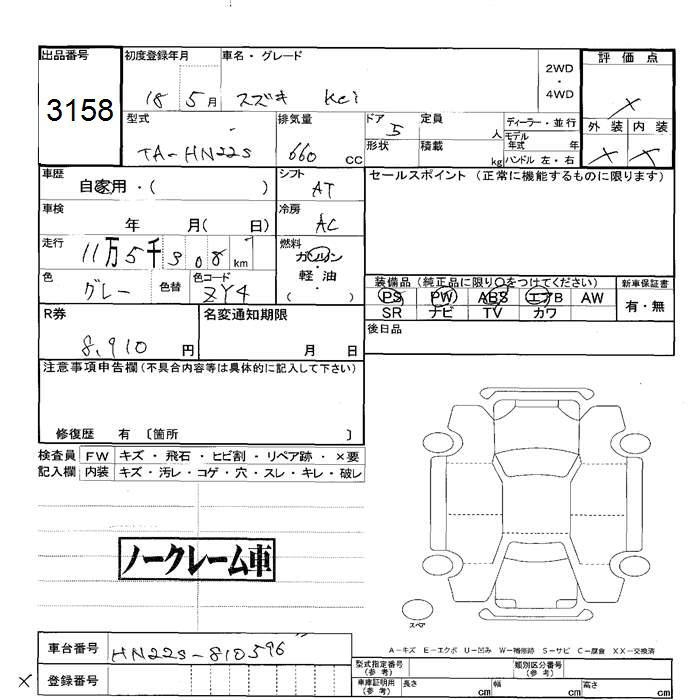 出品番号 初度登録年月 車名・グレード 2WD・4WD 評価点
3158 18 5月 スズキ Kei X
型式 排気量 ドア 定員 ディーラー・並行 外装 内装
TA-HN22S 660 cc 5 人 モデル年式 年 X X
形状 積載 kg ハンドル 左・右
車歴 自家用・( ) シフト AT セールスポイント (正常に機能するものに限ります)
車検 年 月( 日) 冷房 AC
走行 11万5千308km 燃料 ガソリン・軽・油 ( )
色 グレー 色替 色コード ZY4
装備品 (純正品に限り〇をつけてください) 新車保証書
PS PW ABS エアB AW 有・無
SR ナビ TV カワ
R券 8,910円 名変通知期限 月 日 後日品
注意事項申告欄(不具合内容等は具体的に記入して下さい)
修復歴 有 〔箇所 〕
検査員 FW キズ・飛石・ヒビ割・リペア跡・×要
記入欄 内装 キズ・汚レ・コゲ・穴・スレ・キレ・破レ
ノークレーム車
スペア
A-キズ E-エクボ U-凹み W-補修跡 S-サビ C-腐食 XX-交換済
車台番号 HN22S-810596
× 登録番号
型式指定番号(参考) 類別区分番号(参考)
車庫証明用(参考) 長さ cm 幅 cm 高さ cm